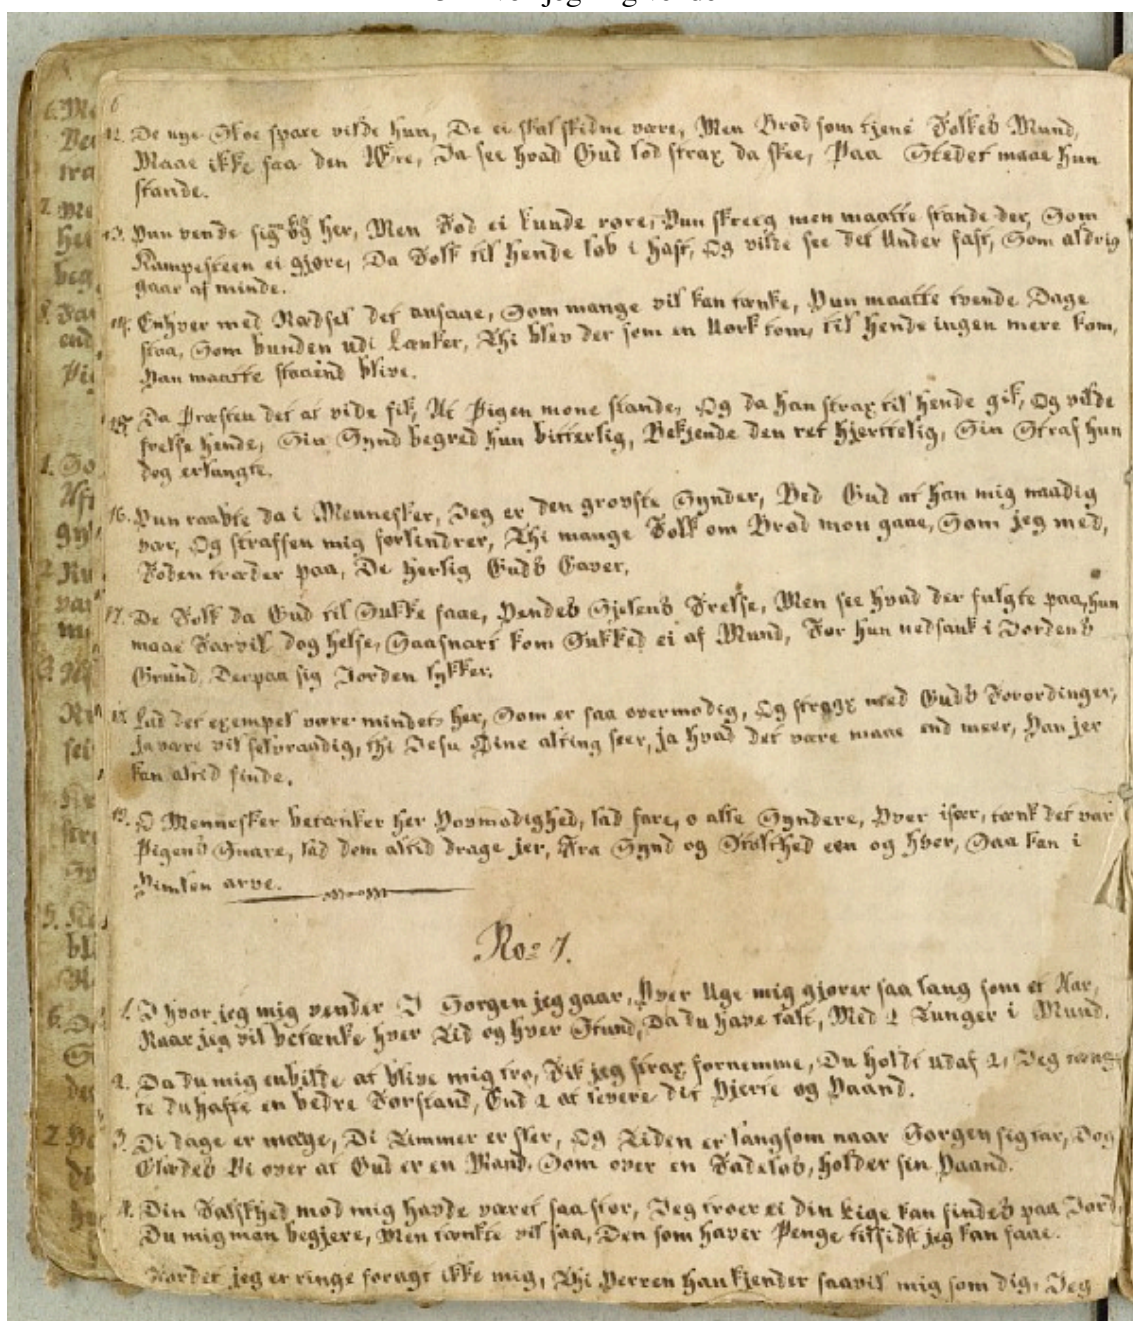 6
12. De nye Skoe spare vilde hun, De ei skal skidne være, Men Brød som tjene Folkes Mund,
Maae ikke faa den Ære, Ja see hvad Gud lod strax da skee, Paa Stedet maae hun
stande.
13. Hun vende sig og her, Men Fod ei kunde røre, Hun skreeg men maatte stande der, Som
Kampesteen ei gjøre, Da Folk til hende løb i hast, Og vilde see det Under fast, Som aldrig
gaar af minde.
14. Enhver med Rædsel det ansaae, Som mange vil kan tænke, Hun maatte tvende Dage
staa, Som bunden udi Lænker, Thi blev der som en tom, til hende ingen mere kom,
Han maatte staaend blive.
15. Da Præsten det at vide fik, At Pigen mone stande, Og da han strax til hende gik, Og vilde
frelse hende, Sin Synd begred hun bitterlig, Bekjende den ret hjerttelig, Sin Straf hun
dog erlangte.
16. Hun raabte da i Mennesker, Jeg er den grovste Synder, Bed Gud at han mig naadig
vær, Og straffen mig forlindrer, Thi mange Folk om Brød mon gaae, Som jeg med,
Foden træder paa, De herlig Guds Gaver,
17. De Folk da Gud til Sukke faae, Hendes Sjelens Frelse, Men see hvad der fulgte paa, hun
maae Farvil dog helse, Saasnart kom Sukked ei af Mund, Før hun nedsank i Jordens
Grund, Derpaa sig Jorden lykker.
18. Lad det exempel være mindet her, Som er saa overmodig, Og mod Guds Forordinger,
Ja være vil selvraadig, thi Jesu Øine alting seer, ja hvad det være maae end meer, Han jer
kan altid finde.
19. O Mennesker betænker her Hovmodighed, lad fare, o alle Syndere, Hver især, tænk det var
Pigens Snare, lad dem altid drage jer, Fra Synd og Stolthed een og hver, Saa kan i
Himlen arve.
No= 7.
1. I hvor jeg mig vender I Sorgen jeg gaar, Hver Uge mig gjører saa lang som et Aar,
Naar jeg vil betænke hver Tid og hver Stund, Da du have talt, Med 2 Tunger i Mund.
2. Da du mig enbilde at blive mig tro, Fik jeg strax fornemme, Du holdt udaf 2, Jeg tæng-
te du hafte en bedre Forstand, End 2 at levere dit Hjerte og Haand.
3. Di dage er mage, Di Timmer er fler, Og Tiden er langsom naar Sorgen sig tar, Dog
Glædes Vi over at Gud er en Mand. Som over en Fadeløs, holder sin Haand.
4. Din Falskhed mod mig havde været saa stor, Jeg troer ei din Lige kan findes paa Jord,
Du mig mon begjere, Men tænkte vil saa, Den som haver Penge tilsidst jeg kan faae.
Fordet jeg er ringe foragt ikke mig, Thi Herren han kjender saavil mig som dig, Jeg